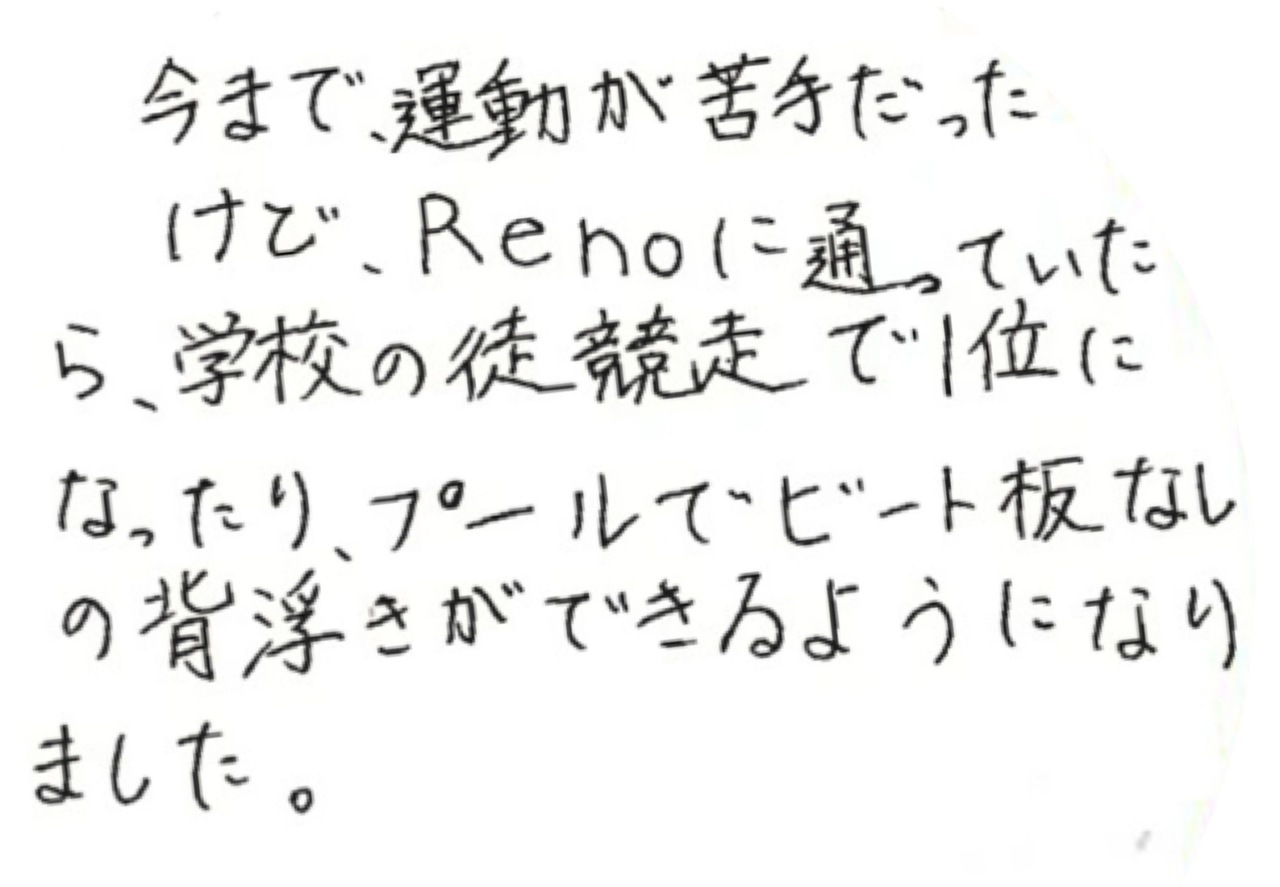 今まで、運動が苦手だった
けど、Renoに通っていた
ら、学校の徒競走で1位に
なったり、プールでビート板なし
の背浮きができるようになり
ました。